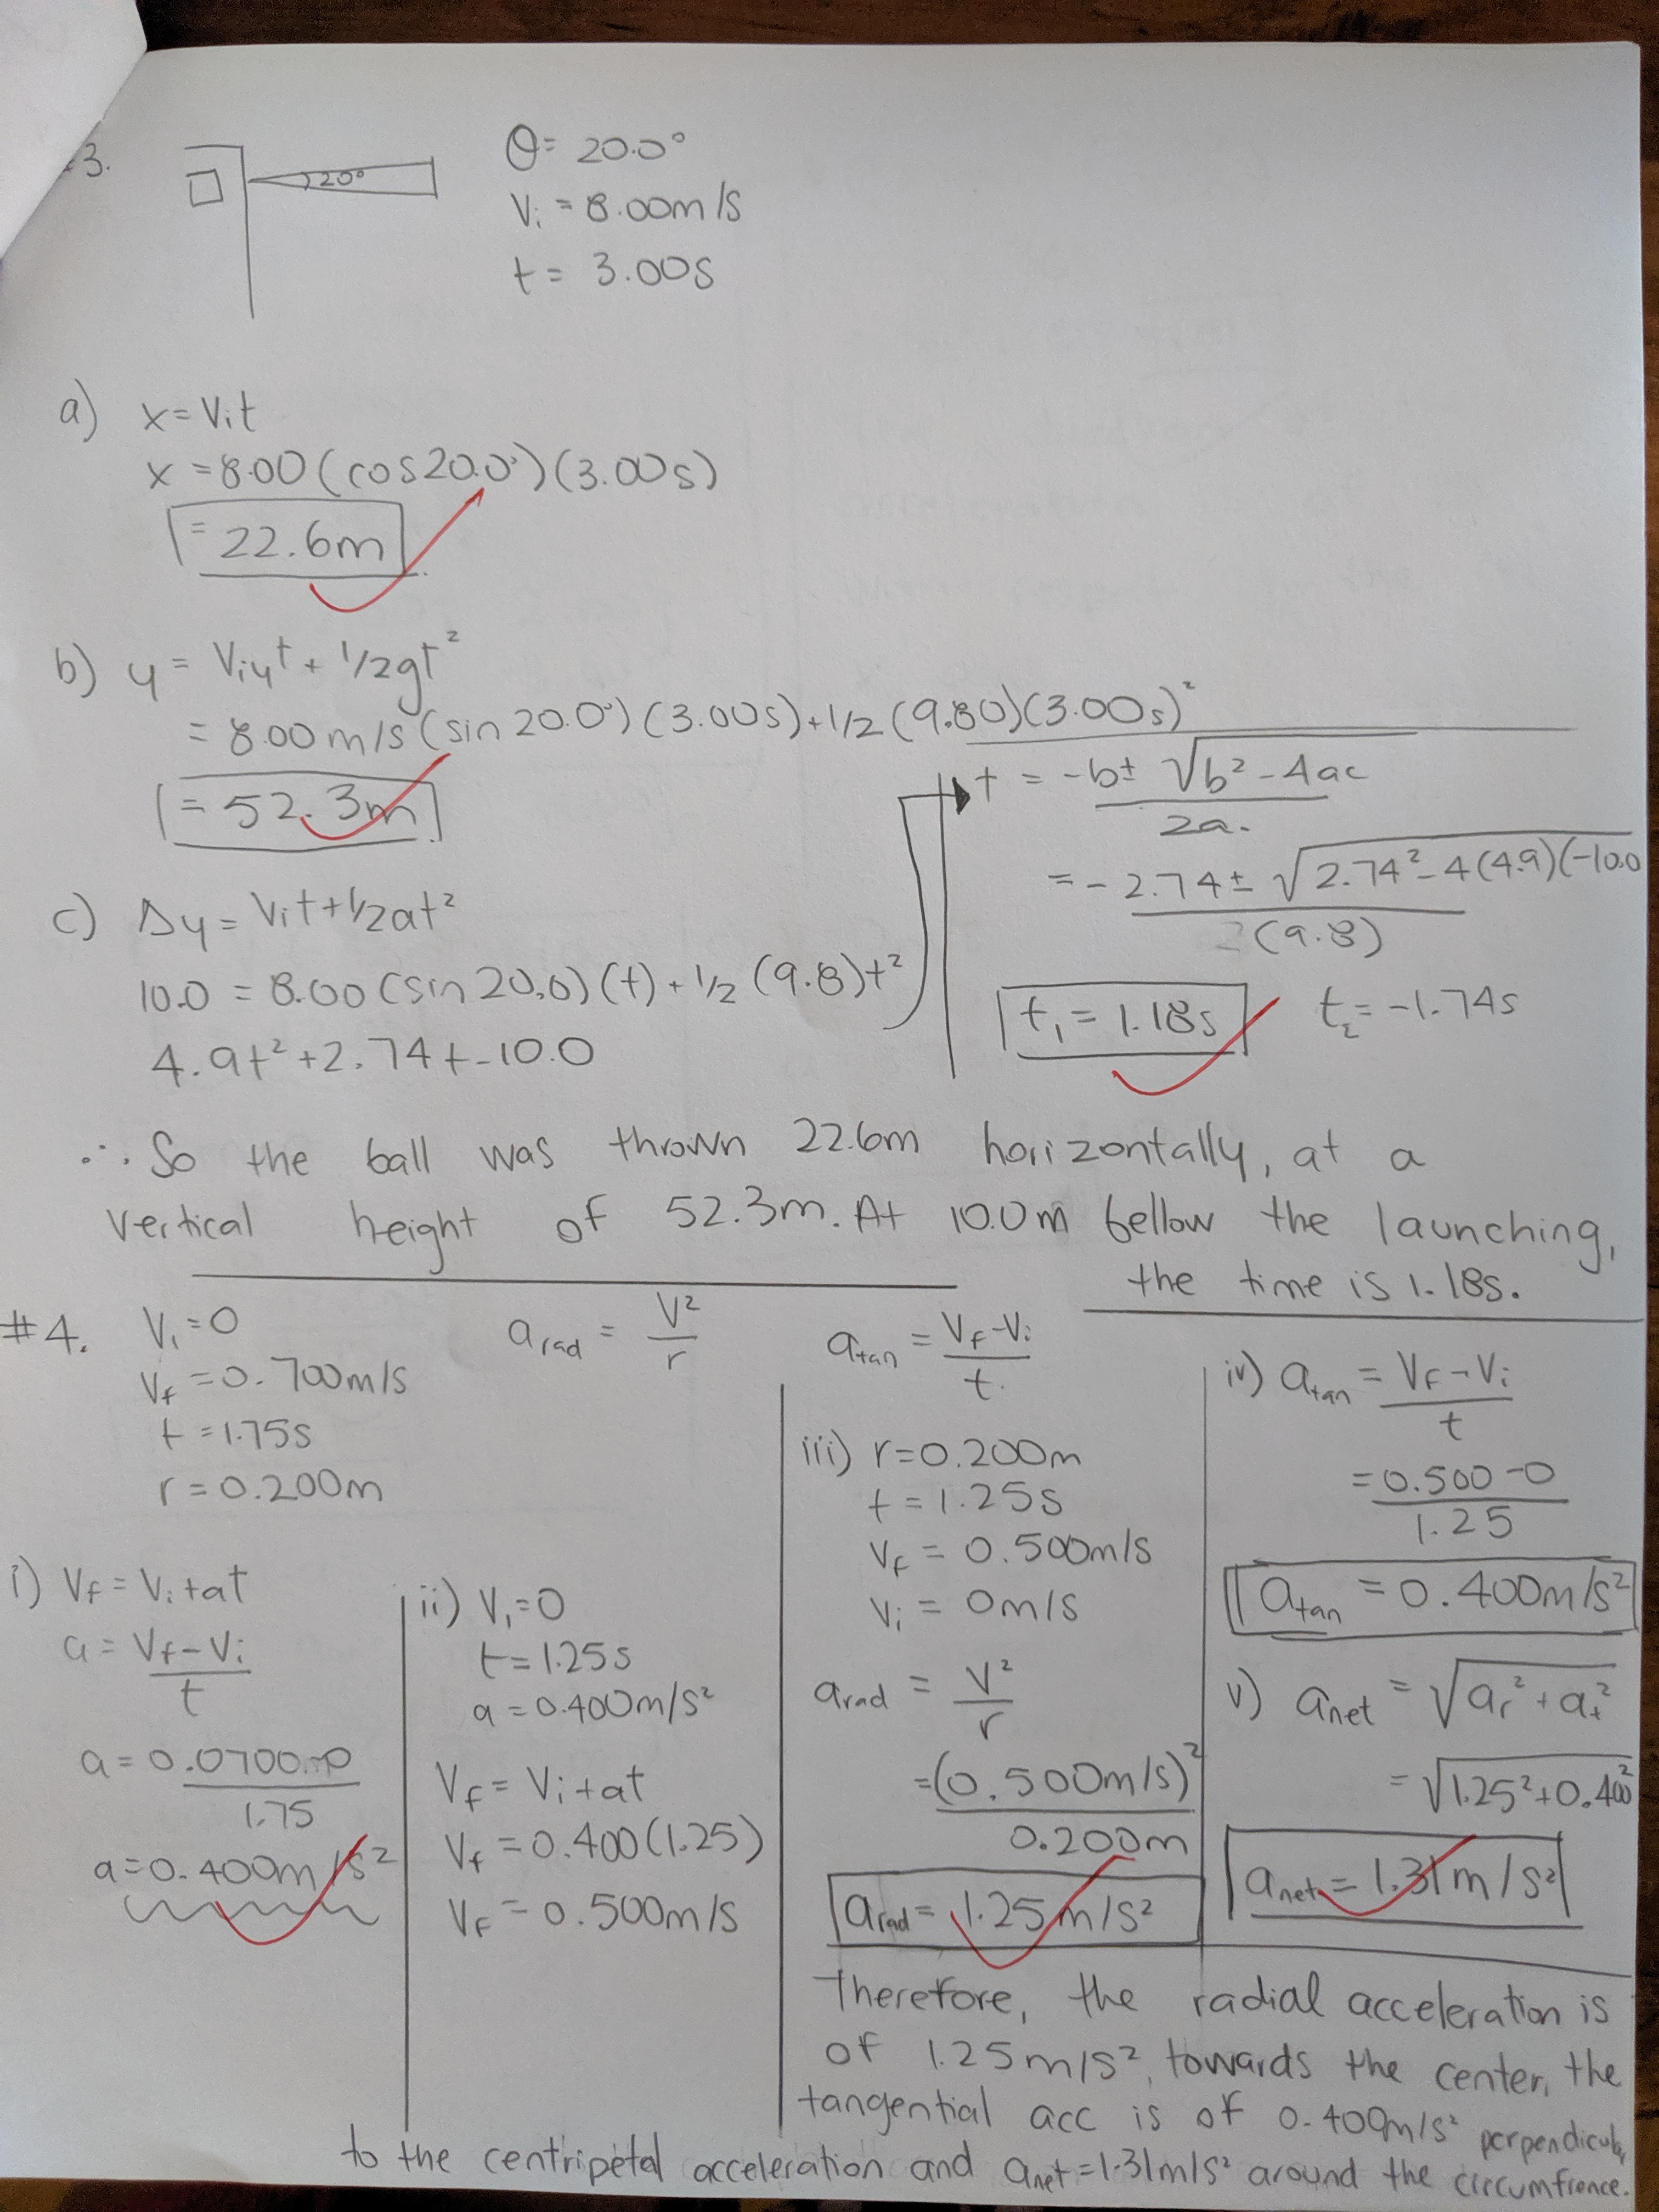 3.
20°
θ = 20.0°
Vi = 8.00m/s
t = 3.00s
a) x = Vit
x = 8.00 (cos 20.0°)(3.00s)
= 22.6m
b) y = Viyt + 1/2gt²
= 8.00 m/s (sin 20.0°)(3.00s) + 1/2 (9.80)(3.00s)²
= 52.3m
c) Δy = Vit + 1/2at²
10.0 = 8.00 (sin 20.0)(t) + 1/2 (9.8)t²
4.9t² + 2.74t - 10.0
t = -b ± √b² - 4ac
2a.
= -2.74 ± √2.74² - 4(4.9)(-10.0
(9.8)
t₁ = 1.18s
t₂ = -1.74s
∴ So the ball was thrown 22.6m horizontally, at a
vertical height of 52.3m. At 10.0m bellow the launching,
the time is 1.18s.
#4.
Vi = 0
Vf = 0.700m/s
t = 1.75s
r = 0.200m
arad = V²
r
atan = Vf - Vi
t.
i) Vf = Vi + at
a = Vf - Vi
t
a = 0.0700 - 0
1.75
a = 0.400m/s²
ii) Vi = 0
t = 1.25s
a = 0.400m/s²
Vf = Vi + at
Vf = 0.400(1.25)
Vf = 0.500m/s
iii) r = 0.200m
t = 1.25s
Vf = 0.500m/s
Vi = 0m/s
arad = V²
r
= (0.500m/s)²
0.200m
arad = 1.25m/s²
iv) atan = Vf - Vi
t
= 0.500 - 0
1.25
atan = 0.400m/s²
v) anet = √ar² + at²
= √1.25² + 0.400²
anet = 1.31m/s²
Therefore, the radial acceleration is
of 1.25m/s², towards the center, the
tangential acc is of 0.400m/s² perpendicular
to the centripetal acceleration and anet = 1.31m/s² around the circumfrence.